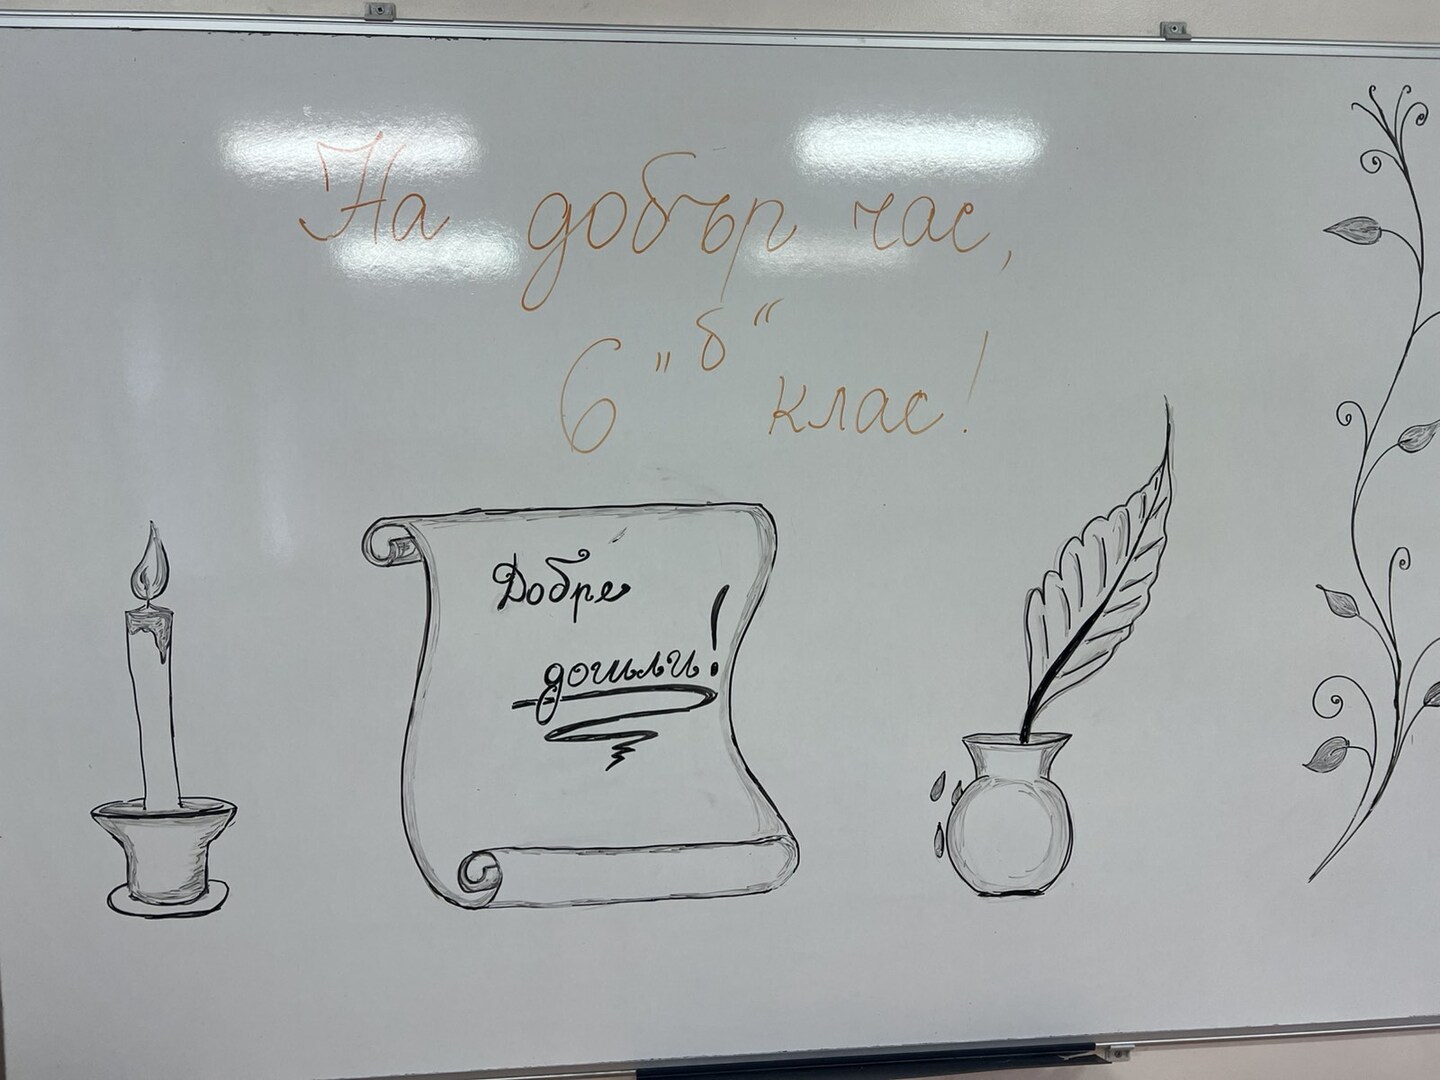 На добър час,
6 „б“ клас!
Добре
дошли!